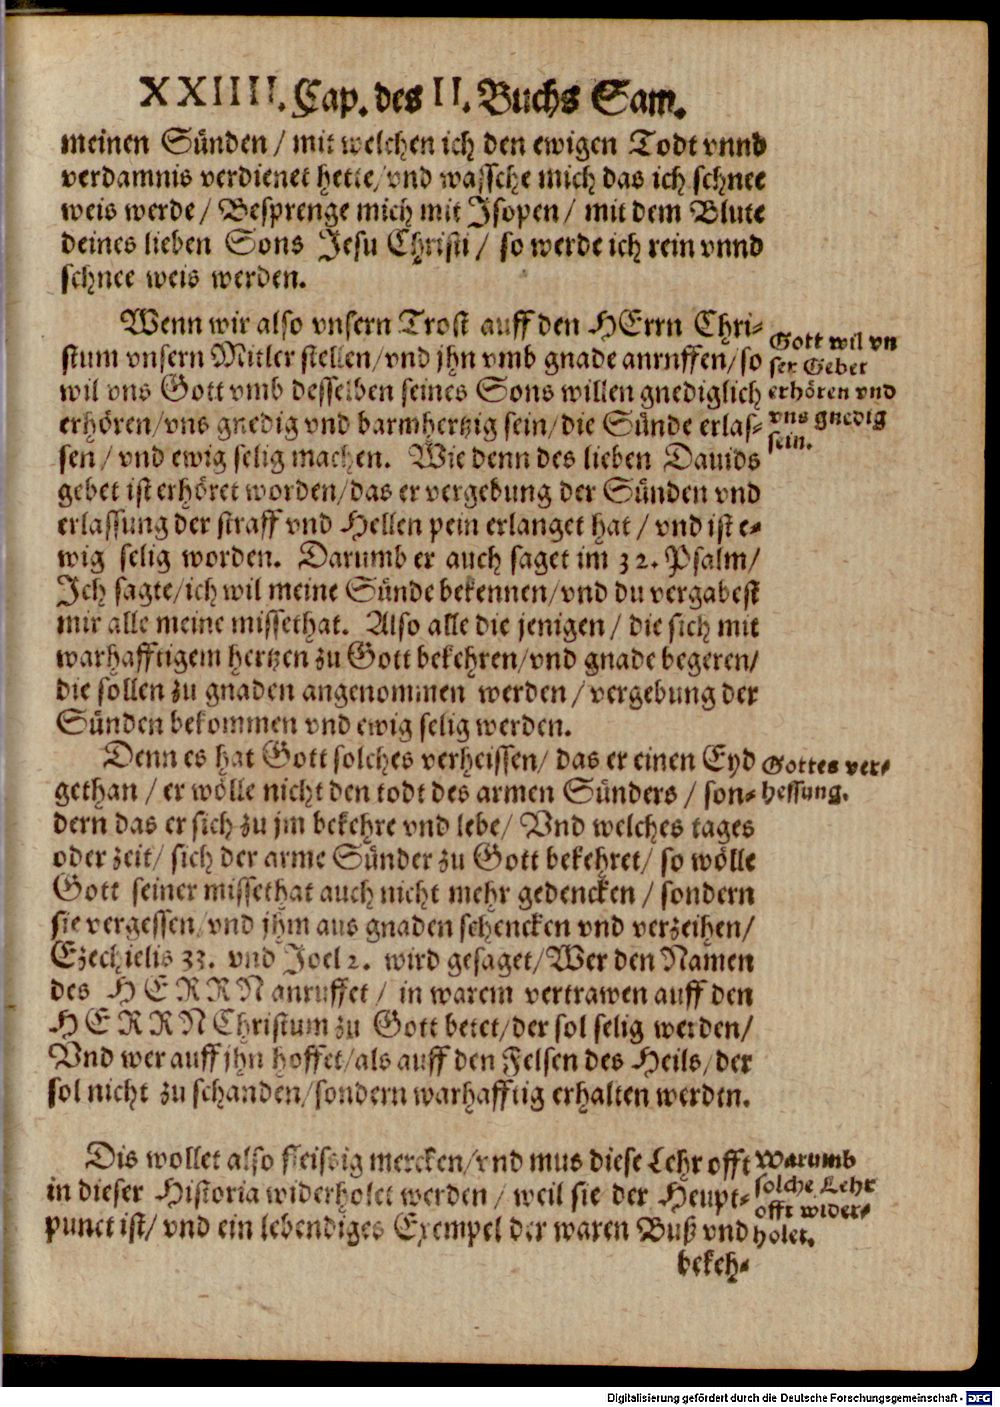 XXIIII. Cap. des II. Buchs Sam.
meinen Sünden / mit welchen ich den ewigen Todt vnnd
verdamnis verdienet hette/vnd wassche mich das ich schnee
weis werde / Besprenge mich mit Jsopen / mit dem Blute
deines lieben Sons Jesu Christi / so werde ich rein vnnd
schnee weis werden.
Wenn wir also vnsern Trost auff den HErrn Chri-
stum vnsern Mitler stellen/vnd jhn vmb gnade anruffen/so
wil vns Gott vmb desselben seines Sons willen gnediglich
erhören/vns gnedig vnd barmhertzig sein/die Sünde erlas-
sen / vnd ewig selig machen. Wie denn des lieben Dauids
gebet ist erhöret worden/das er vergebung der Sünden vnd
erlassung der straff vnd Hellen pein erlanget hat / vnd ist e-
wig selig worden. Darumb er auch saget im 32. Psalm/
Jch sagte/ich wil meine Sünde bekennen/vnd du vergabest
mir alle meine missethat. Also alle die jenigen / die sich mit
warhafftigem hertzen zu Gott bekehren/vnd gnade begeren/
die sollen zu gnaden angenommen werden / vergebung der
Sünden bekommen vnd ewig selig werden.
Gott wil vn
ser Gebet
erhören vnd
vns gnedig
sein.
Denn es hat Gott solches verheissen/ das er einen Eyd
gethan / er wölle nicht den todt des armen Sünders / son-
dern das er sich zu jm bekehre vnd lebe/ Vnd welches tages
oder zeit/ sich der arme Sünder zu Gott bekehret/ so wölle
Gott seiner missethat auch nicht mehr gedencken / sondern
sie vergessen/vnd jhm aus gnaden schencken vnd verzeihen/
Ezechielis 33. vnd Joel 2. wird gesaget/Wer den Namen
des HERRN anruffet / in warem vertrawen auff den
HERRN Christum zu Gott betet/der sol selig werden/
Vnd wer auff jhn hoffet/als auff den Felsen des Heils/der
sol nicht zu schanden/sondern warhafftig erhalten werden.
Gottes ver-
hessung.
Dis wollet also fleissig mercken/vnd mus diese Lehr offt
in dieser Historia widerholet werden / weil sie der Heupt-
punct ist/ vnd ein lebendiges Exempel der waren Buß vnd
Warumb
solche Lehr
offt wider-
holet.
bekeh-
Digitalisierung gefördert durch die Deutsche Forschungsgemeinschaft - DFG